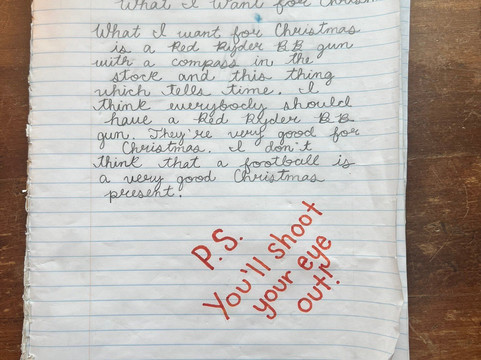 What I want for Christm
What I want for Christmas
is a Red Ryder B B gun
with a compass in the
stock and this thing
which tells time. I
think everybody should
have a Red Ryder B B
gun. They're very good for
Christmas. I don't
think that a football is
a very good Christmas
present.
P.S.
You'll shoot
your eye
out!